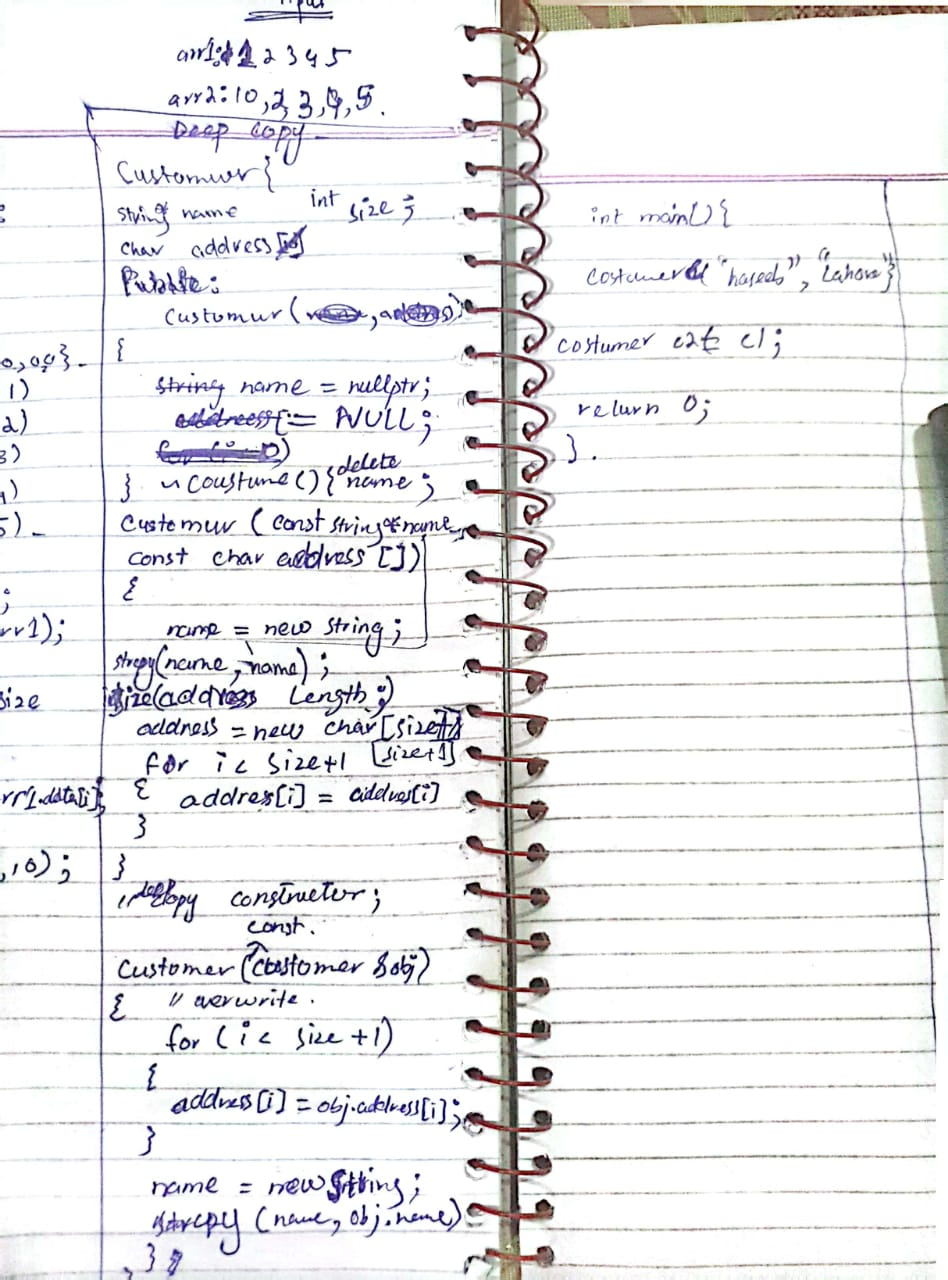 Input
arr1: 1 2 3 4 5
arr2: 10, 2, 3, 4, 5.
Deep copy
Customur {
string* name int size;
char address
Public:
Customur (
{
string name = nullptr;
address[ := NULL;
} ~ coustume () { delete name ;
Customur ( const string* name
const char address [])
{
name = new string ;
strcpy(name, name) ;
size(address Length ;)
address = new char [size+1]
for i < size+1 [size+1]
{ address[i] = address[i]
}
}
// deep copy constructor ;
const.
Customer (customer &obj)
{ // overwrite.
for ( i < size +1)
{
address[i] = obj.address[i];
}
name = new string ;
strcpy (name, obj.name)
}
:
0,00}.
1)
2)
3)
4)
5) -
;
rr1);
size
rr1.data[i];
,10) ;
int main() {
costumer "haseeb", "Lahore"}
costumer c2 c1;
return 0;
}.